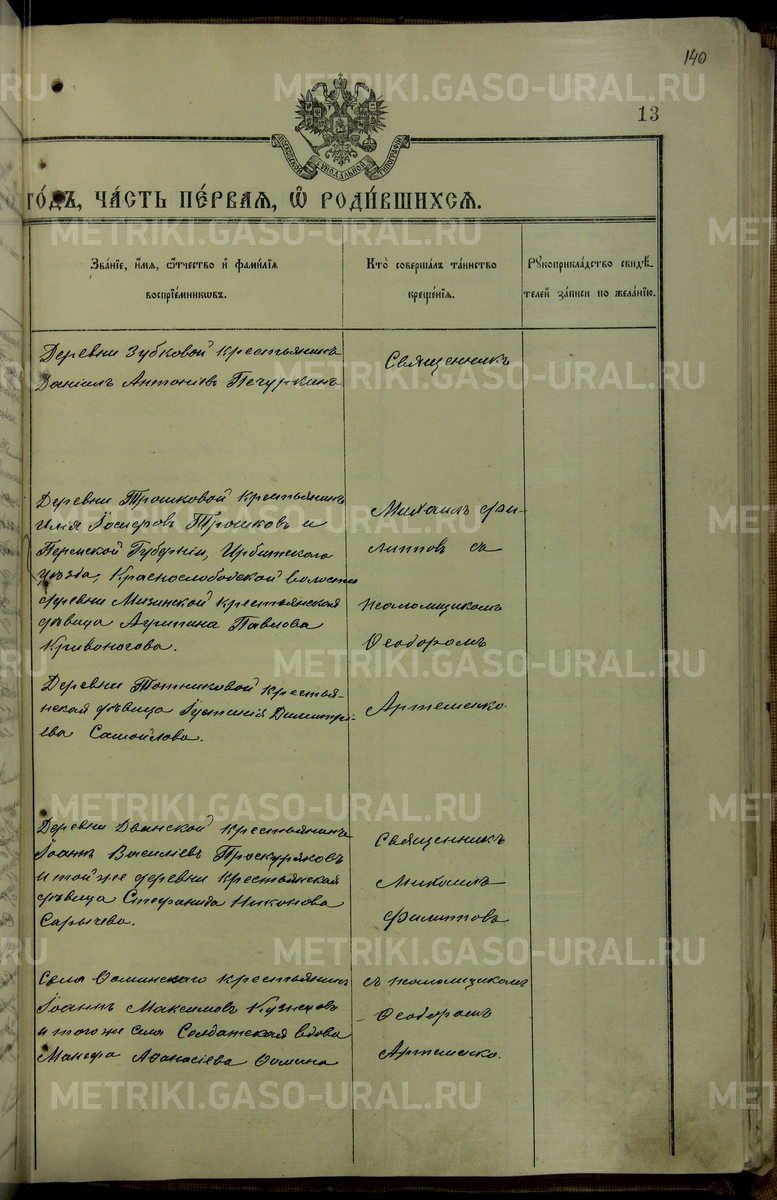 140
13
МОСКОВСКОЙ СѴНОДАЛЬНОЙ ТИПОГРАФІИ
ГО́ДЪ, ЧА́СТЬ ПЕ́РВАѦ, Ѽ РОДИ́ВШИХСѦ.
Зва́нїе, и҆́мѧ, ѻ҆́тчество и҆ фами́лїѧ
воспрїе́мникѡвъ.
Кто̀ соверша́лъ та́инство
креще́нїѧ.
Рꙋкоприкла́дство свидѣ́-
телей за́писи по жела́нїю.
Деревни Зубковой крестьянинъ
Даніилъ Антоніевъ Печуркинъ
Священникъ
Деревни Трошковой крестьянинъ
Илія Іосифовъ Трошковъ и
Пермской Губерніи, Ирбитскаго
уѣзда, Краснослободской волости
деревни Мизинской крестьянская
дѣвица Агриппина Павлова
Кривоногова.
Михаилъ Фи-
липповъ съ
псаломщикомъ
Ѳеодоромъ
Деревни Тотниковой крестья-
нская дѣвица Іустинія Димитрі-
ева Самойлова.
Артеменко.
Деревни Двинской крестьянинъ
Іоаннъ Василіевъ Проскуряковъ
и той же деревни крестьянская
дѣвица Стефанида Никонова
Сарычева.
Священникъ
Михаилъ
Филипповъ
Села Ѳоминскаго крестьянинъ
Іоаннъ Максимовъ Кузнецовъ
и того же села Солдатская вдова
Манефа Аѳанасіева Ѳомина
съ псаломщикомъ
Ѳеодоромъ
Артеменко.
METRIKI.GASO-URAL.RU